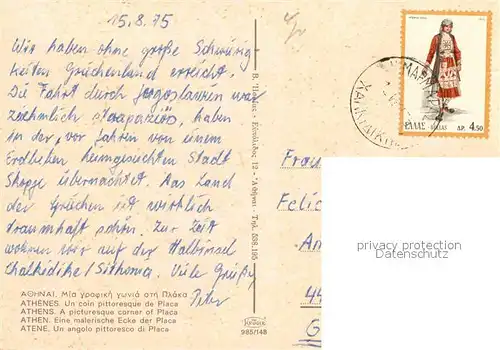 15.8.75
Wir haben ohne große Schwierig-
keiten Griechenland erreicht.
Die Fahrt durch Jugoslawien war
ziehmlich strapaziös, haben
in der, vor Jahren von einem
Erdbeben heimgesuchten Stadt
Skopje übernachtet. Das Land
der Griechen ist wirklich
traumhaft schön. Zur Zeit
wohnen wir auf der Halbinsel
Chalkidike/Sithonia. Viele Grüße
Peter
ΑΘΗΝΑΙ. Μία γραφική γωνιά στή Πλάκα
ATHENES. Un coin pittoresque de Placa
ATHENS. A picturesque corner of Placa
ATHEN. Eine malerische Ecke der Placa
ATENE. Un angolo pittoresco di Placa
985/148
ΕΛΛΑΣ HELLAS ΔΡ. 4.50
Frau
Felic
An
44
G
privacy protection
Datenschutz